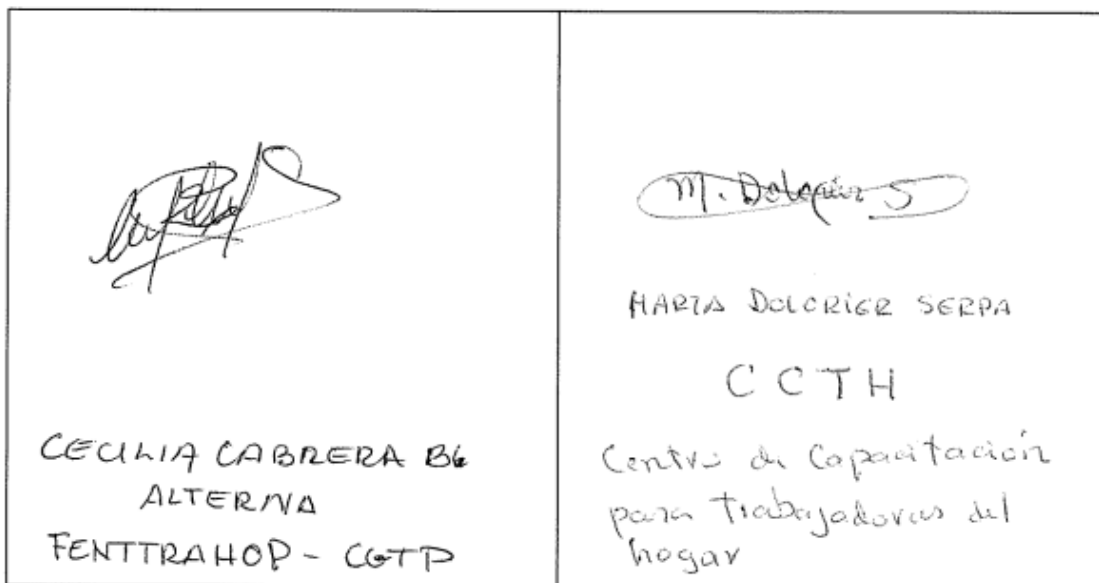 CECILIA CABRERA
ALTERNA
FENTTRAHOP - CGTP
M. Dolorier S
MARIA DOLORIER SERPA
CCTH
Centro de Capacitación
para trabajadoras del
hogar